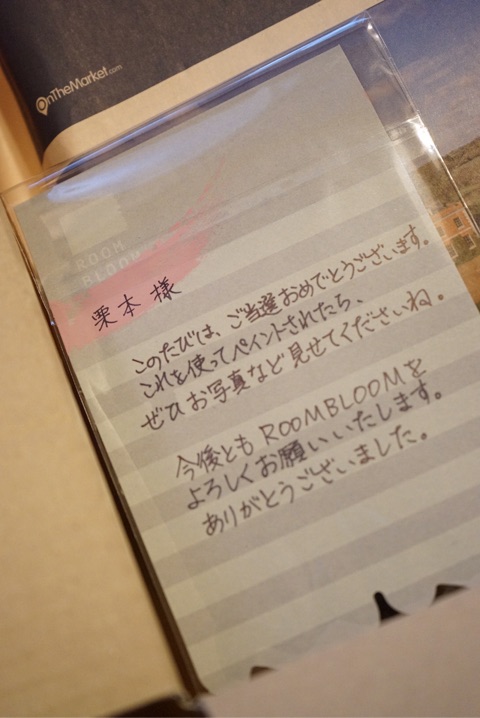 OnTheMarket.com
ROOM
BLOOM
栗本 様
このたびは、ご当選おめでとうございます。
これを使ってペイントされたら、
ぜひお写真など見せてくださいね。
今後とも ROOMBLOOMを
よろしくお願いいたします。
ありがとうございました。